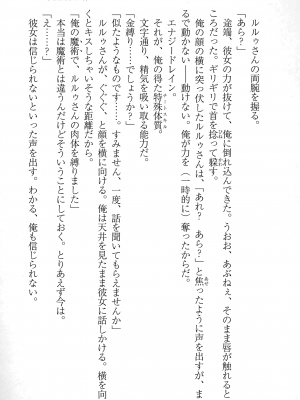 ルルゥさんの両腕を握る。
「あら？」
途端、彼女の力が抜けて、俺に倒れ込んできた。うおお、あぶねぇ、そのまま唇が触れると
ころだった。ギリギリで首を捻って躱す。
俺の顔の横に突っ伏したルルゥさんは、「あれ？　あら？」と焦ったように声を出すが、ま
るで動かない――動けない。俺が力を（一時的に）奪ったからだ。
エナジードレイン。
それが、俺の得た特殊体質。
文字通り、精気を吸い取る能力だ。
「金縛り……でしょうか？」
「似たようなものです……すみません、一度、話を聞いてもらえませんか」
ルルゥさんが、ぐぐ、と顔を横に向ける。俺は天井を見たまま彼女に話しかける。横を向
くとキスしちゃいそうな距離だから。
「俺の魔術で、ルルゥさんの肉体を縛りました」
本当は魔術とは違うんだけどそういうことにしておく。とりあえず今は。
彼女は信じられないといった声を出す。わかる、俺も信じられない。